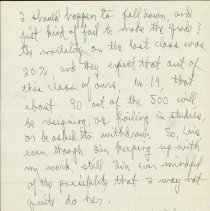 I should happen to fall down, and
just kind of fail to make the grade?
The mortality on the last class was
20%, and they expect that out of
this class of ours, No. 19, that
about 90 out of the 500 will
be resigning or failing in studies,
or be asked to withdraw. So, Lois
even though I'm keeping up with
my work, still I'm ever mindful
of the possibility that I may not
quite do her.